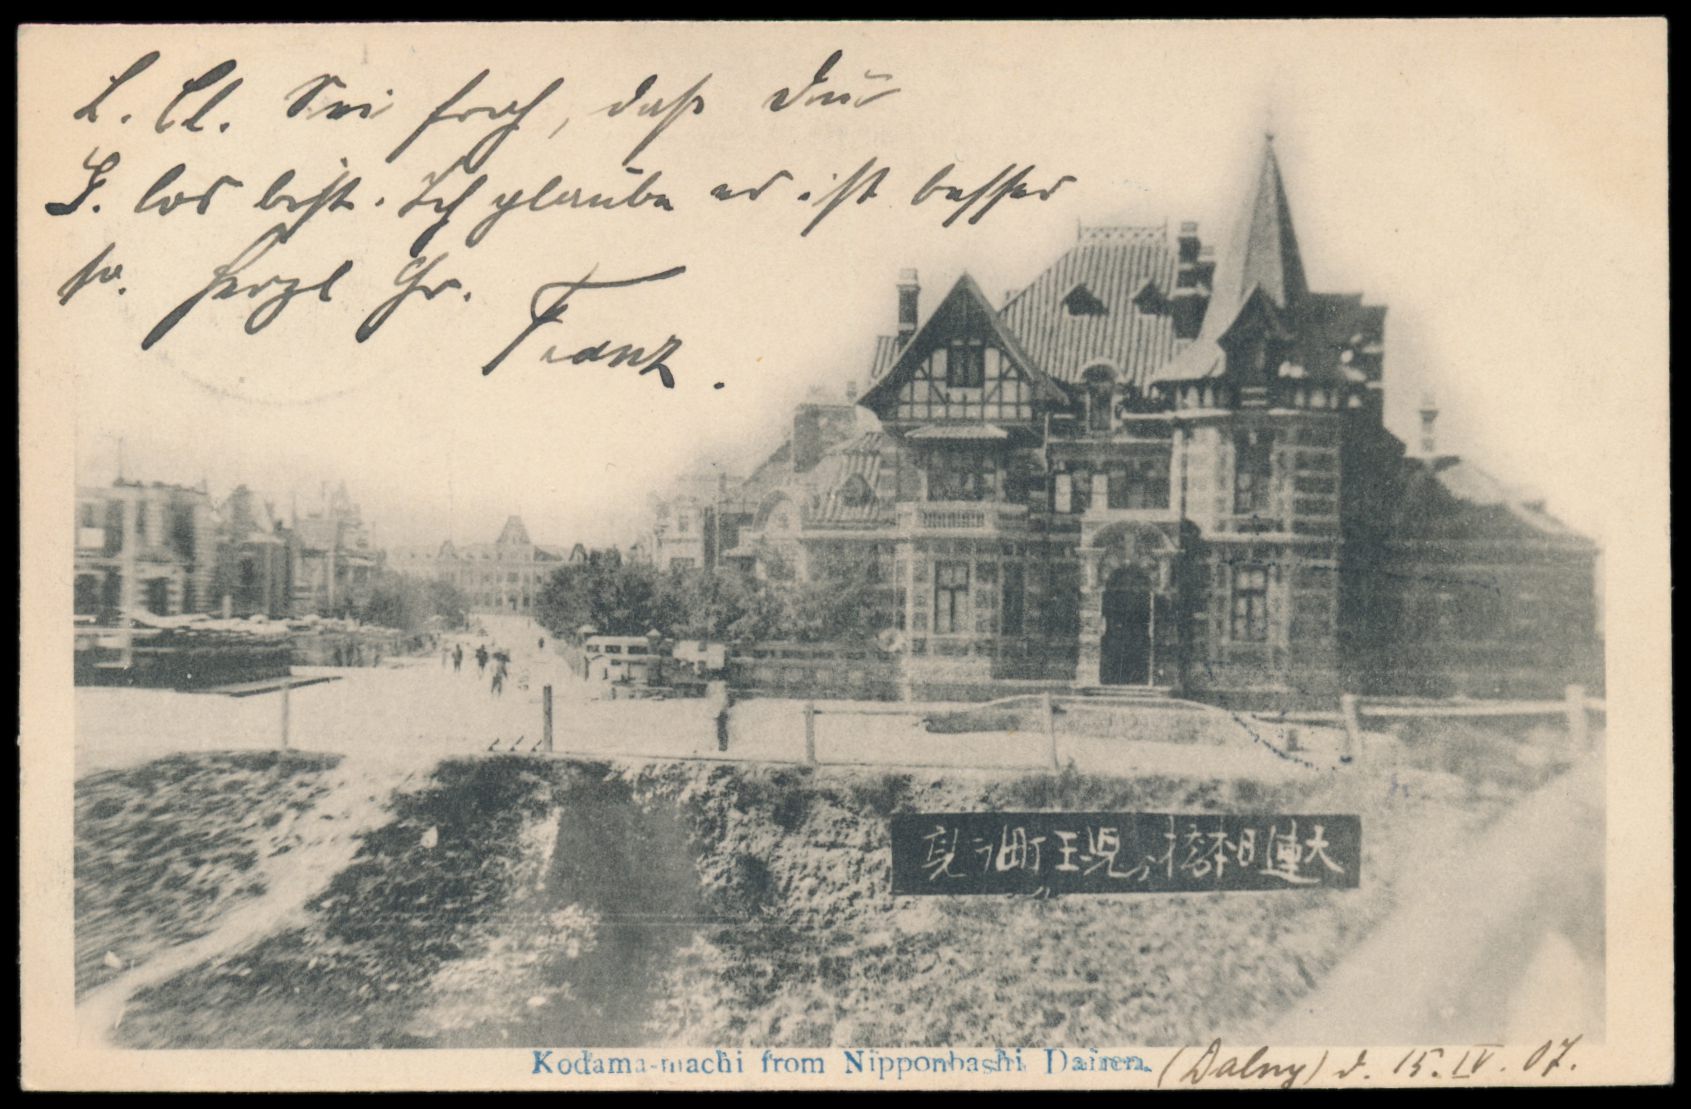 L. Cl. Sei froh, daß Du
G. los bist. Ich glaube es ist besser
so. Herzl Gr.
Franz.
大連日本橋ヨリ児玉町ヲ見
Kodama-machi from Nipponbashi, Dairen. (Dalny) d. 15. IV. 07.